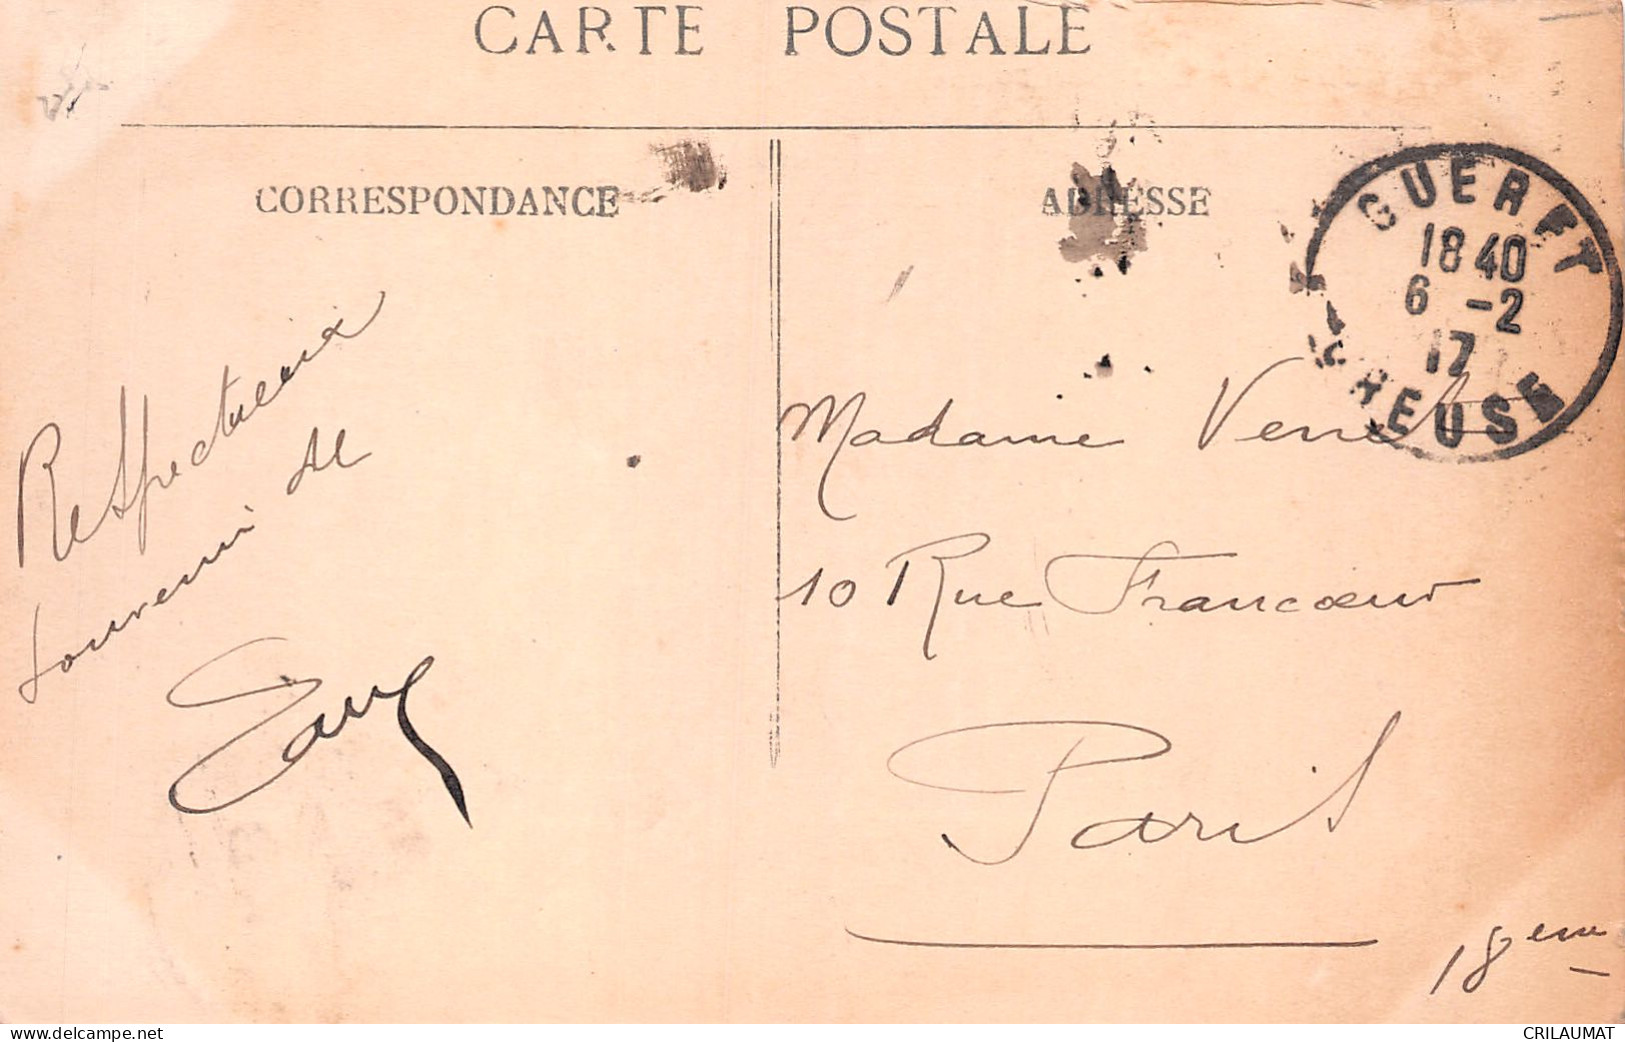 CARTE POSTALE
CORRESPONDANCE
ADRESSE
GUERET
18 40
6 -2
17
CREUSE
Respectueux
souvenir de
Madame Venet
10 Rue Francœur
Paris
18eme
www.delcampe.net
CRILAUMAT